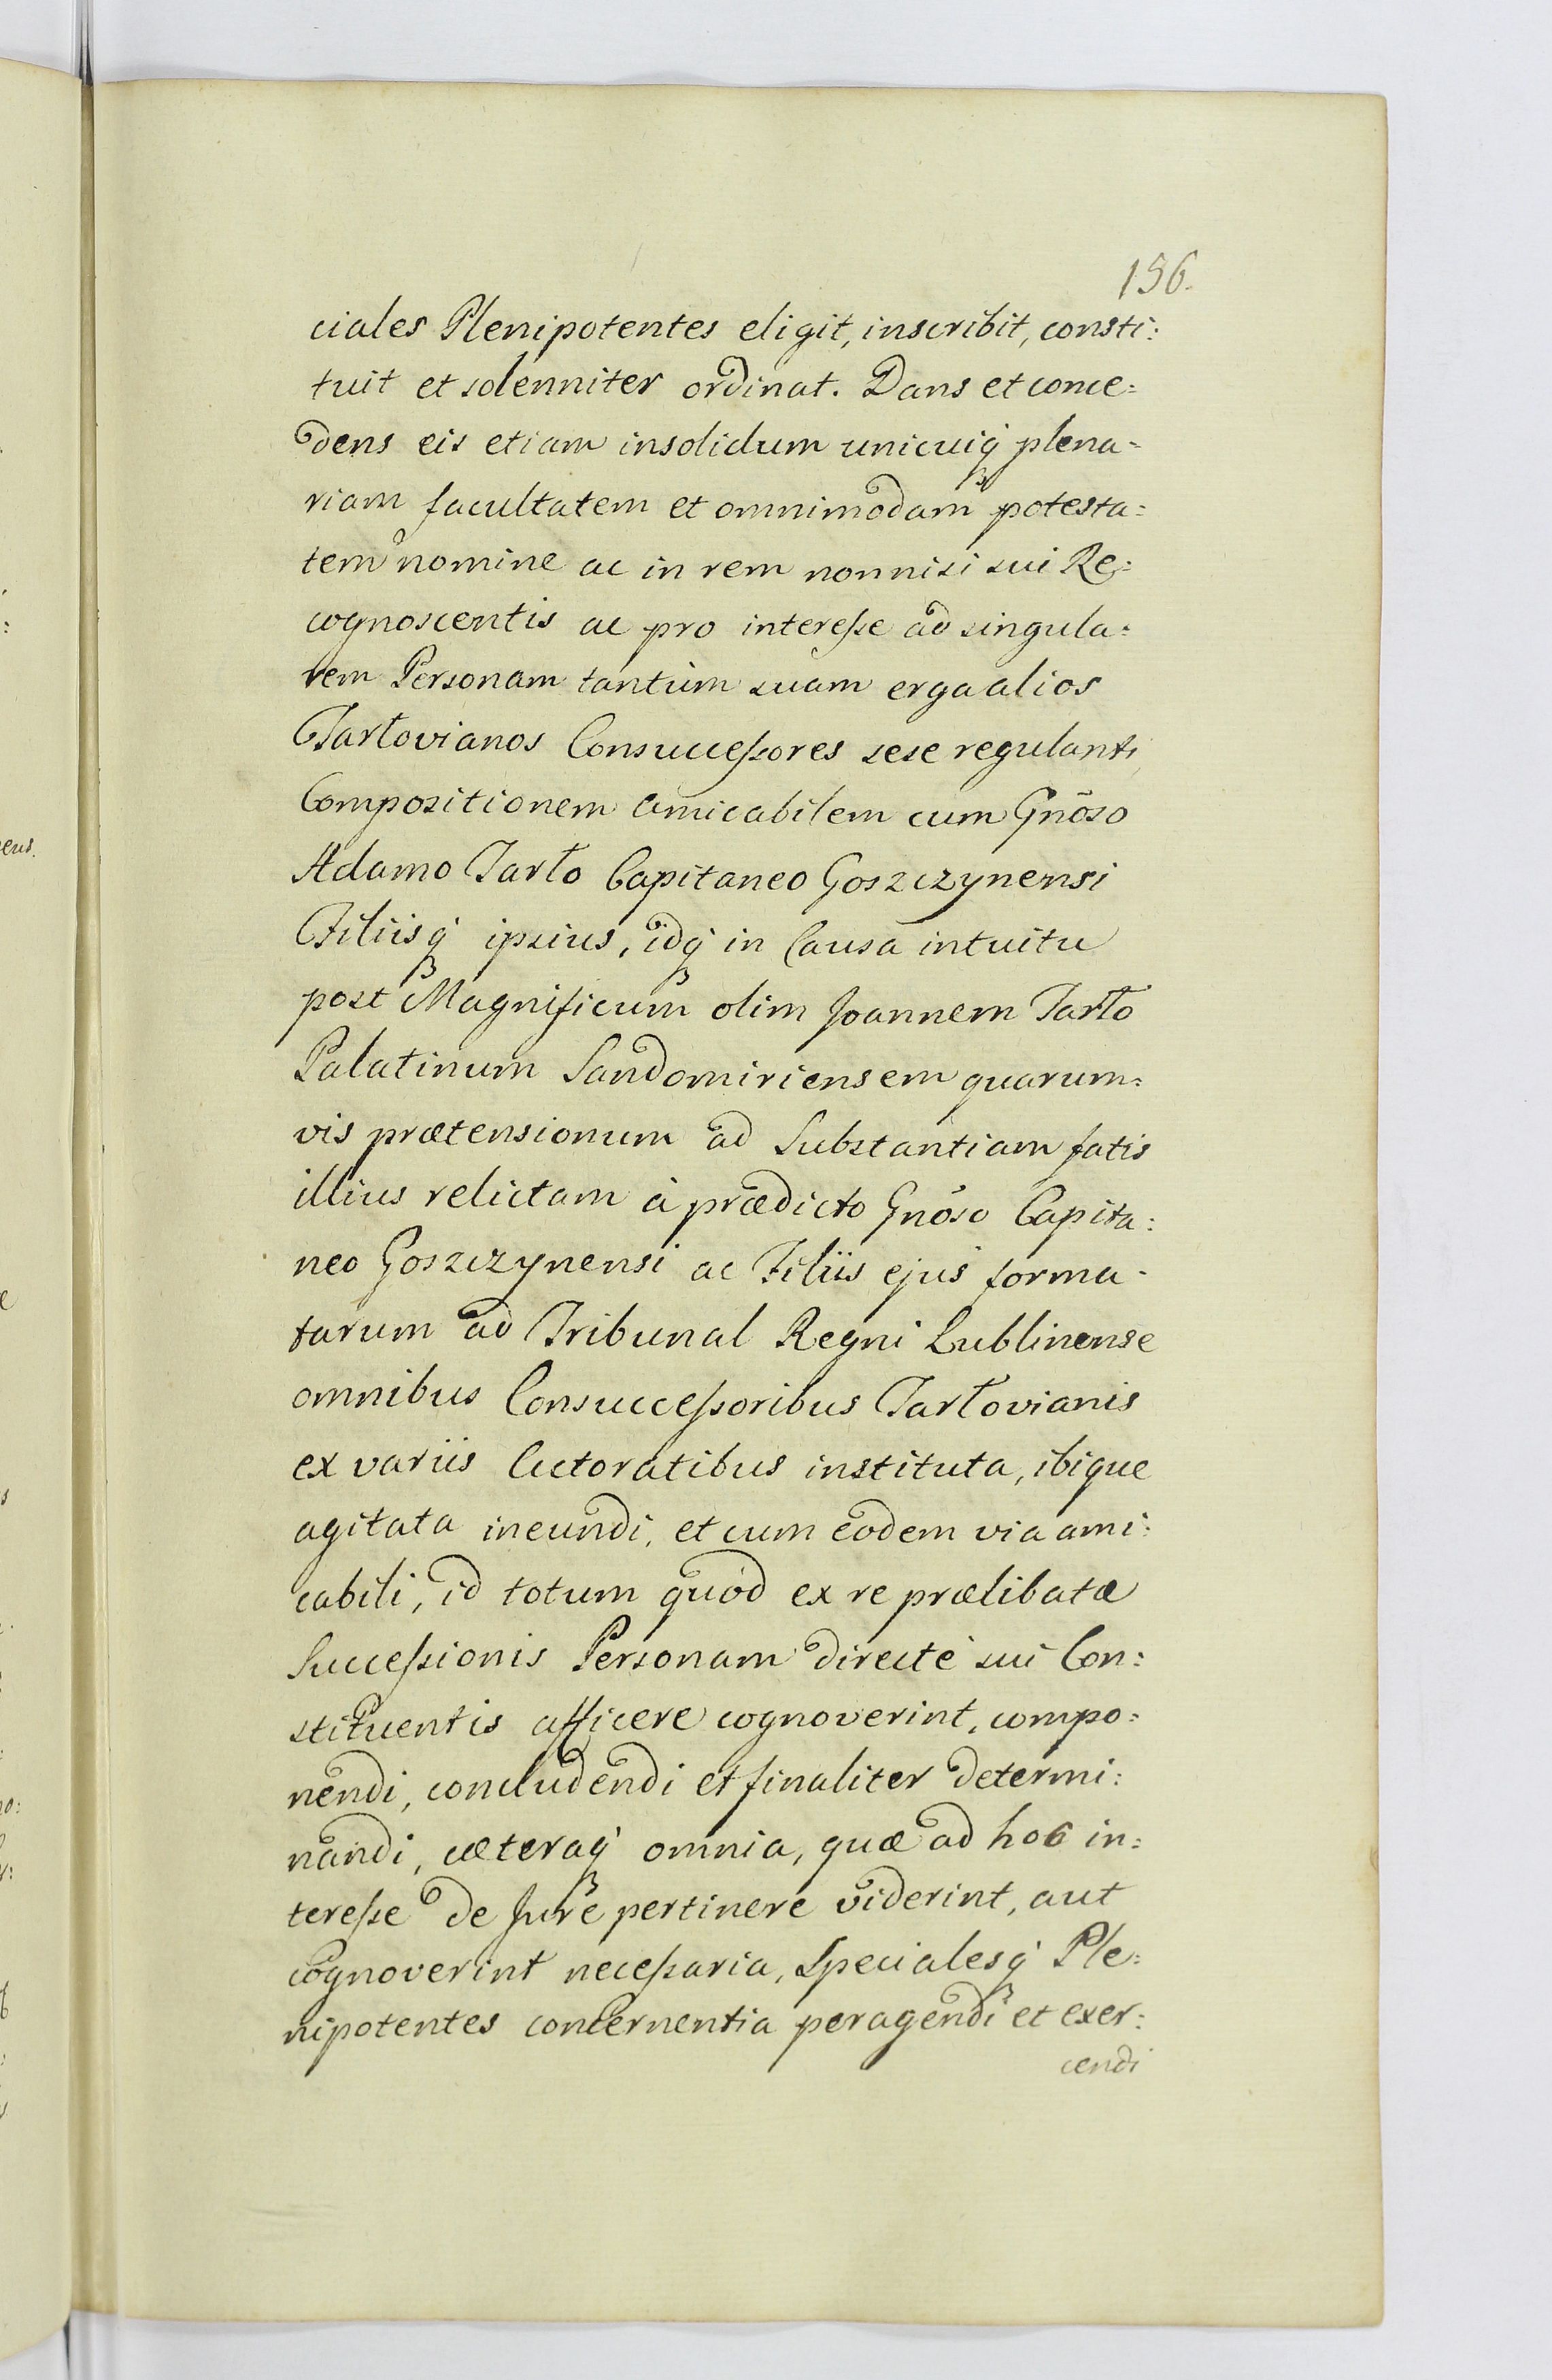 156.
ciales Plenipotentes eligit, inscribit, consti:
tuit et solenniter ordinat. Dans et conce:
dens eis etiam insolidum unicuiq́ plena-
riam facultatem et omnimodam potesta:
tem nomine ac in rem nonnisi sui Re:
cognoscentis ac pro interesse ad singula:
rem Personam tantùm suam erga alios
Tarłovianos Consuccessores sese regulanti,
Compositionem amicabilem cum Gnōso
Adamo Tarło Capitaneo Goszczynensi
Filiisq́ ipsius, idq́ in Causa intuitu
post Magnificum olim Joannem Tarło
Palatinum Sandomiriensem quarum:
vis prætensionum ad Substantiam fatis
illius relictam à prædicto Gnōso Capita:
neo Goszczynensi ac Filiis ejus forma-
tarum ad Tribunal Regni Lublinense
omnibus Consuccessoribus Tarłovianis
ex variis Actoratibus instituta, ibique
agitata ineundi, et cum eodem via ami:
cabili, id totum quòd ex re prælibatæ
Successionis Personam directè sui Con:
stituentis afficere cognoverint, compo:
nendi, concludendi et finaliter determi:
nandi, cæteraq́ omnia, quæ ad hoc in:
teresse de Jure pertinere viderint, aut
cognoverint necessaria, Specialesq́ Ple:
nipotentes concernentia peragendi et exer:
cendi